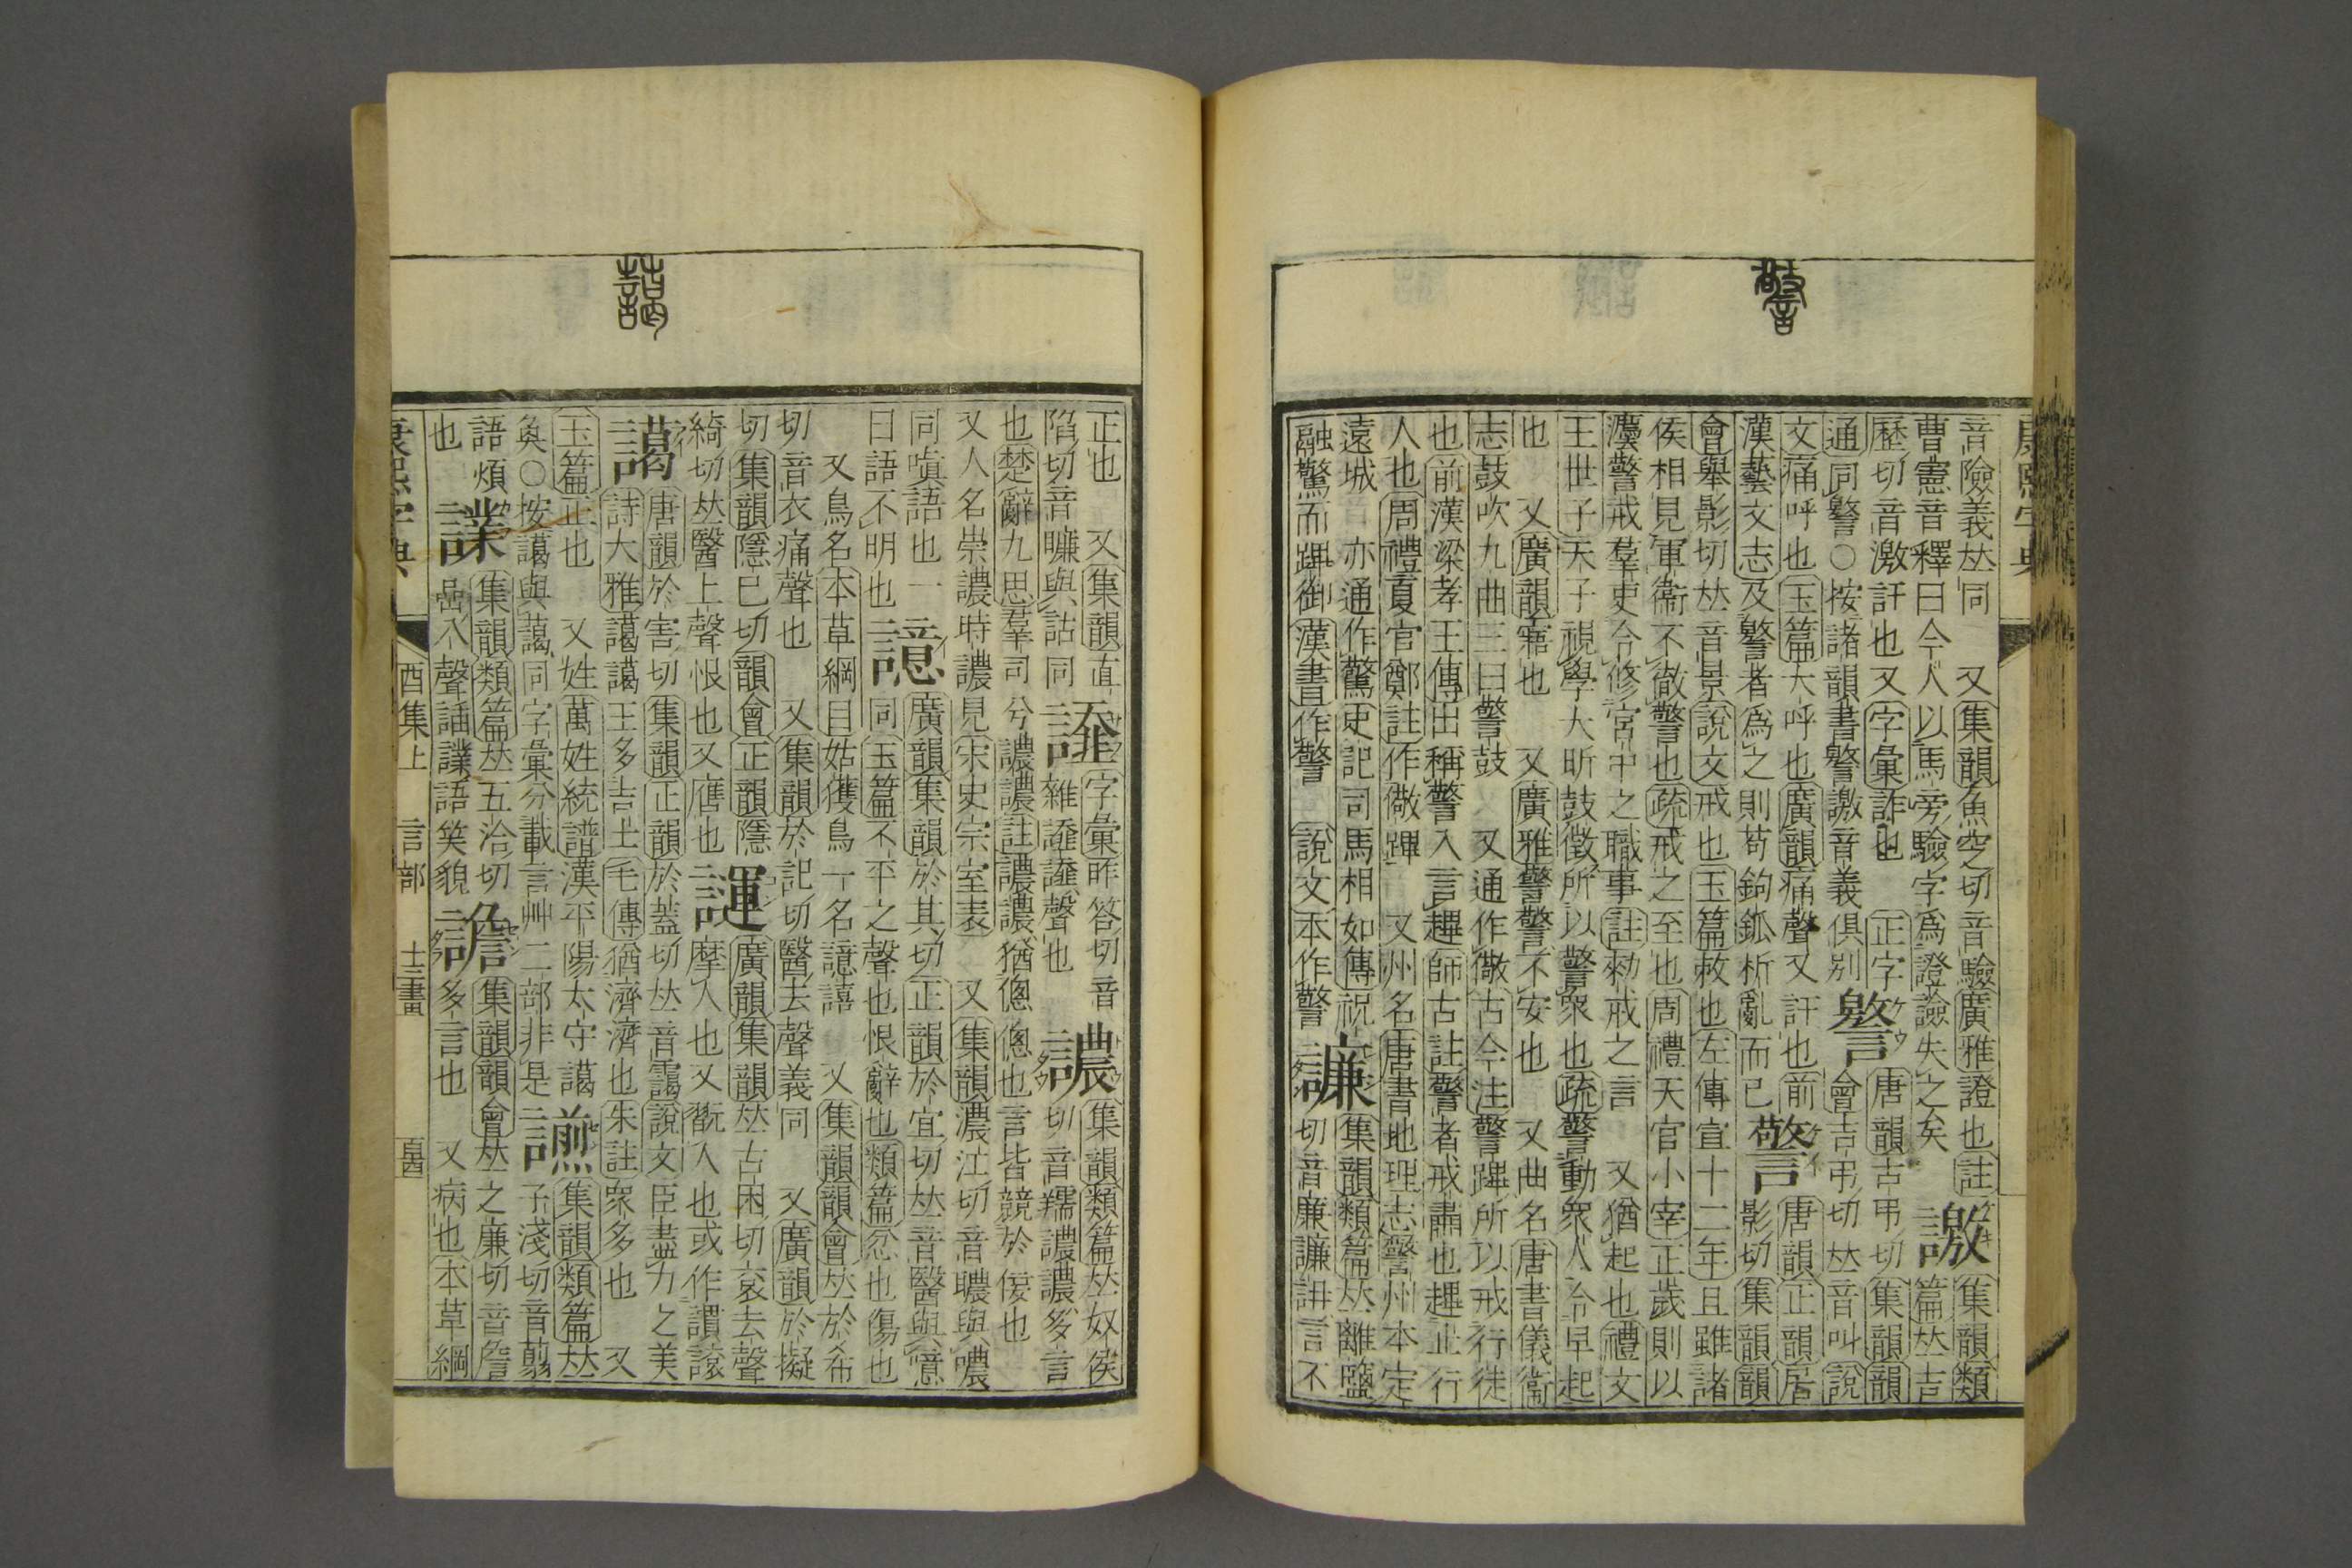 音險義𠀤同　又集韻魚窆切音驗廣雅證也註　集韻類
曹憲音釋曰今人以馬旁驗字爲證譣失之矣　譤　篇𠀤吉
歷切音激訐也又字彙詐也　正字　唐韻古弔切集韻韻
通同譥○按諸韻書譥譤音義俱別　譥　會吉弔切𠀤音叫說
文痛呼也玉篇大呼也廣韻痛聲又訐也前　唐韻正韻居
漢藝文志及譥者爲之則苟鉤鈲析亂而已　警　影切集韻韻
會舉影切𠀤音景說文戒也玉篇敕也左傳宣十二年且雖諸
侯相見軍衞不徹警也疏戒之至也周禮天官小宰正歲則以
灋警戒羣吏令修宮中之職事註勑戒之言　又猶起也禮文
王世子天子視學大昕鼓徵所以警衆也疏警動衆人令早起
也　又廣韻寤也　又廣雅警警不安也　又曲名唐書儀衞
志鼓吹九曲三曰警鼓　又通作儆古今注警蹕所以戒行徒
也前漢梁孝王傳出稱警入言䟆師古註警者戒肅也䟆止行
人也周禮夏官鄭註作儆蹕　又州名唐書地理志警州本定
遠城　亦通作驚史記司馬相如傳祝　集韻類篇𠀤離鹽
融驚而蹕御漢書作警　說文本作警　譧　切音廉譧詀言不
正也　又集韻直　字彙昨答切音　集韻類篇𠀤奴侯
陷切音賺與詀同　雜　聲也　譨　切音羺譨譨多言
也楚辭九思羣司兮譨譨註譨譨猶偬偬也言皆競於佞也
又人名崇譨時譨見宋史宗室表　又集韻濃江切音聸與噥
同嗔語也一　譩　廣韻集韻於其切正韻於宜切𠀤音醫與噫
曰語不明也　同玉篇不平之聲也恨辭也類篇忿也傷也
又鳥名本草綱目姑獲鳥一名譩譆　又集韻韻會𠀤於希
切音衣痛聲也　又集韻於記切醫去聲義同　又廣韻於擬
切集韻隱已切韻會正韻隱　廣韻集韻𠀤古困切袞去聲
綺切𠀤醫上聲恨也又譍也　諢　摩人也又翫人也或作謴諼
譪　唐韻於害切集韻正韻於蓋切𠀤音靄說文臣盡力之美
詩大雅譪譪王多吉士毛傳猶濟濟也朱註衆多也　又
玉篇正也　又姓萬姓統譜漢平陽太守譪　集韻類篇𠀤
奐○按譪與藹同字彙分載言艸二部非是　譾　子淺切音翦
語煩　集韻類篇𠀤五洽切　集韻韻會𠀤之廉切音詹
也　喦入聲諨語笑貌　譫　多言也　又病也本草綱
康熙字典　酉集上　言部　士三畫　百
譪
警